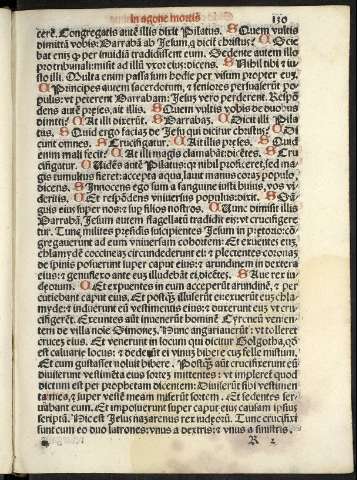 in agone mortis 130
cere. Congregatis autē illis dixit Pilatus. S Quem vultis
dimittā vobis: Barrabā ab Jesum, q̄ dicit christus? O Scie
bat eni q̄ per inuidiā tradidissent eum. Sedente autem illo
protribunali: misit ad illū vxor eius; dicens. S Nihil tibi ⁊ iu
sto illi. Multa enim passa sum hodie per visum propter eū.
O Principes autem sacerdotum, ⁊ seniores persuaserūt po
pulis: vt peterent Barrabam: Jesus vero perderent. Respō
dens autē preses, ait illis. S Quem vultis vobis de duobus
dimitti: O At illi dixerūt. S Barrabaz. O Dicit illi Pila
tus. S Quid ergo faciaz de Jesu qui dicitur christus? O Di
cunt omnes. S Crucifigatur. O Ait illis preses. S Quid
enim mali fecit? O At illi magis clamabāt: dicētes. S Cru
cifigatur. O Uidēs autē Pilatus: qz nihil proficeret, sed ma
gis tumultus fieret: accepta aqua, lauit manus coraz populo,
dicens. S Innocens ego sum a sanguine iusti huius, vos vi
deritis. O Et respōdens vniuersus populus: dixit. S San
guis eius super nos: ⁊ sup filios nostros. O Tunc dimisit illis
Barrabā, Jesum autem flagellatū tradidit eis: vt crucifigere
tur. Tunc milites presidis suscipientes Jesum in pretorio: cō
gregauerunt ad eum vniuersam cohortem: Et exuentes eū;
chlamydē coccineaz circundederunt ei: ⁊ plectentes coronaz
de spinis posuerunt super caput eius: ⁊ arundinem in dextera
eius: ⁊ genuflexo ante eū; illudebāt ei; dicētes. S Aue rex iu
deorum. O Et expuentes in eum acceperūt arundinē, ⁊ per
cutiebant caput eius, Et postq̄ illuserūt ei: exuerūt eū; chla
myde: ⁊ induerūt eū vestimentis eius: ⁊ duxerunt eū; vt cru
cifigerēt. Exeuntes aūt inuenerūt hominē Cyreneū venien
tem de villa noīe Simonez. Hunc angariauerūt: vt tolleret
crucez eius. Et venerunt in locum qui dicitur Golgotha, qō
est caluarie locus: ⁊ dederūt ei vinuz bibere cuz felle mistum,
Et cum gustasset noluit bibere. Postq̄ aūt crucifixerunt eū;
diuiserunt vestimēta eius sortez mittentes: vt impleret̄ quod
dictum est per prophetam dicentem: Diuiserūt sibi vestimen
ta mea, ⁊ super vestē meam miserūt sortem. Et sedentes ser
uabant eum. Et imposuerunt super caput eius causam ipsius
scriptā. Hic est Jesus nazarenus rex iudeorū. Tunc crucifixi
sunt cum eo duo latrones: vnus a dextris: ⁊ vnus a sinistris.
R 2